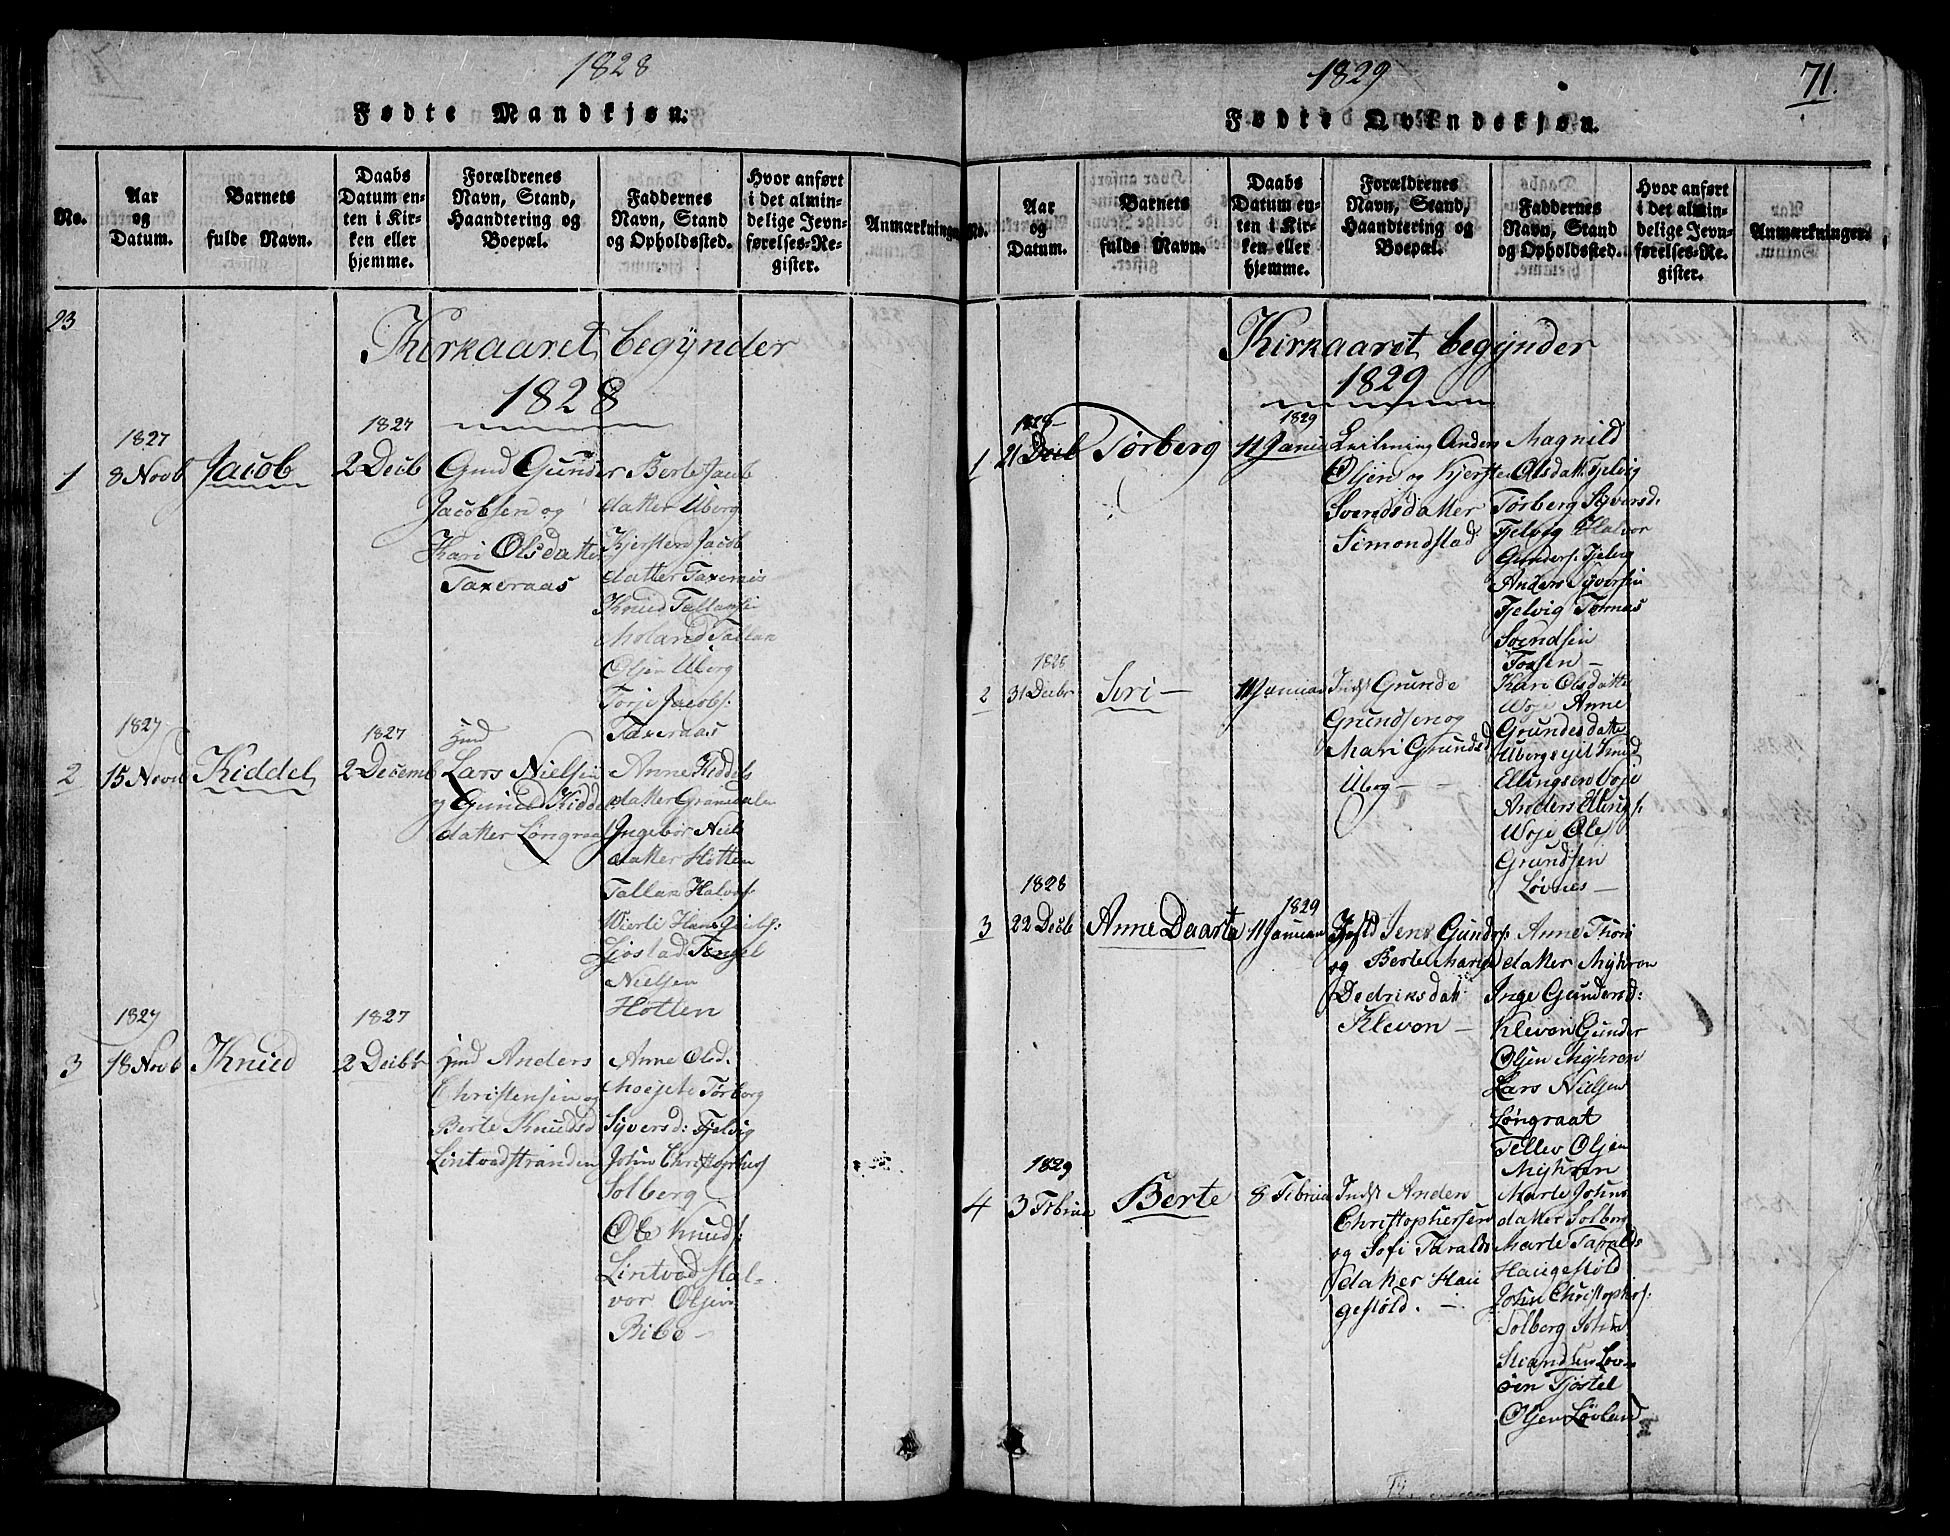 1828
Fødte Mandkjøn.
No.
Aar
og
Datum.
Barnets
fulde Navn.
Daabs
Datum en-
ten i Kir-
ken eller
hjemme.
Forældrenes
Navn, Stand,
Haandtering og
Boepæl.
Faddernes
Navn, Stand
og Opholdssted.
Hvor anført
i det almin-
delige Jevn-
førelses-Re-
gister.
Anmærkninger
23
Kirkaaret begÿnder
1828
1827
1827
1
8 Novb
Jacob
2 Decb
Gmd Gunder
Jacobsen og
Kari Olsdatter
Taxeraas
Berte Jacob
datter Uberg
Kjersten Jacob
datter Taxeraas
Knud Tallaksen
Moland Tallak
Olsen Uberg
Torje Jacobs:
Taxeraas
1827
1827
2
15 Novb
Kiddel
2 Decemb
Lars Nielsen
og Gunild Kiddel
datter Løngraat
Anne Kiddels
datter Granedalen
Ingebor Niels
datter Hotten
Tallak Halvors
Hans
Tengel
Nielsen
Hotten
1827
1827
3
18 Novb
Knud
2 Decbr
Anders
Christensen og
Berte Knudsd
Lintvedstranden
Anne Olsd.
Torborg
Syversd: Fjelvig
John Christophers
Solberg
Ole Knuds:
Lintved Hal-
vor Olsen
Ribe —
1829
71.
Fødte Qvindekjøn.
No.
Aar
og
Datum.
Barnets
fulde Navn.
Daabs
Datum en-
ten i Kir-
ken eller
hjemme.
Forældrenes
Navn, Stand,
Haandtering og
Boepæl.
Faddernes
Navn, Stand
og Opholdssted.
Hvor anført
i det almin-
delige Jevn-
førelses-Re-
gister.
Anmærkninger
Kirkaaret begÿnder
1829
1828
1829
1
21 Decb
Tørberg
11 Janua
Anders
Olsen og Kjersten
Svendsdatter
Simondstad
Magnild
Olsdatt: Fjelvig
Tørberg Syversd:
Fjelvig Halvor
Gunders: Fjelvig
Anders Syversen
Fjelvig Tomas
Svendsen
Fossen —
1828
2
31 Decbr
Siri —
11 Januar
Inds: Grunde
Grundsen og
Mari Grundsd
Uberg —
Kari Olsdatte
Woje Anne
Grundesdatte
Ubergseje Knud
Ellingsen Woje
Anders Ellings:
Woje Ole
Grundsen
Løvnes —
1828
1829
3
22 Decb
Anne Daarte
11 Januar
Jens Gunders:
og Berte Marie
Dedriksdatt:
Klevon —
Anne Thors
datter Myhren
Inge Gundersd:
Klevon Gunder
Olsen Myhren
Lars Nielsen
Løngraat
Tellev Olsen
Myhren
1829
4
3 Februa
Berte
8 Februa
Inds: Anders
Christophersen
og Sofi Taralds
datter Hau
gestøld. —
Marte Johns
datter Solberg
Marte Taralds
Haugestøld
John Christophers:
Solberg John
Løv-
Tjøstel
Olsen Løvland